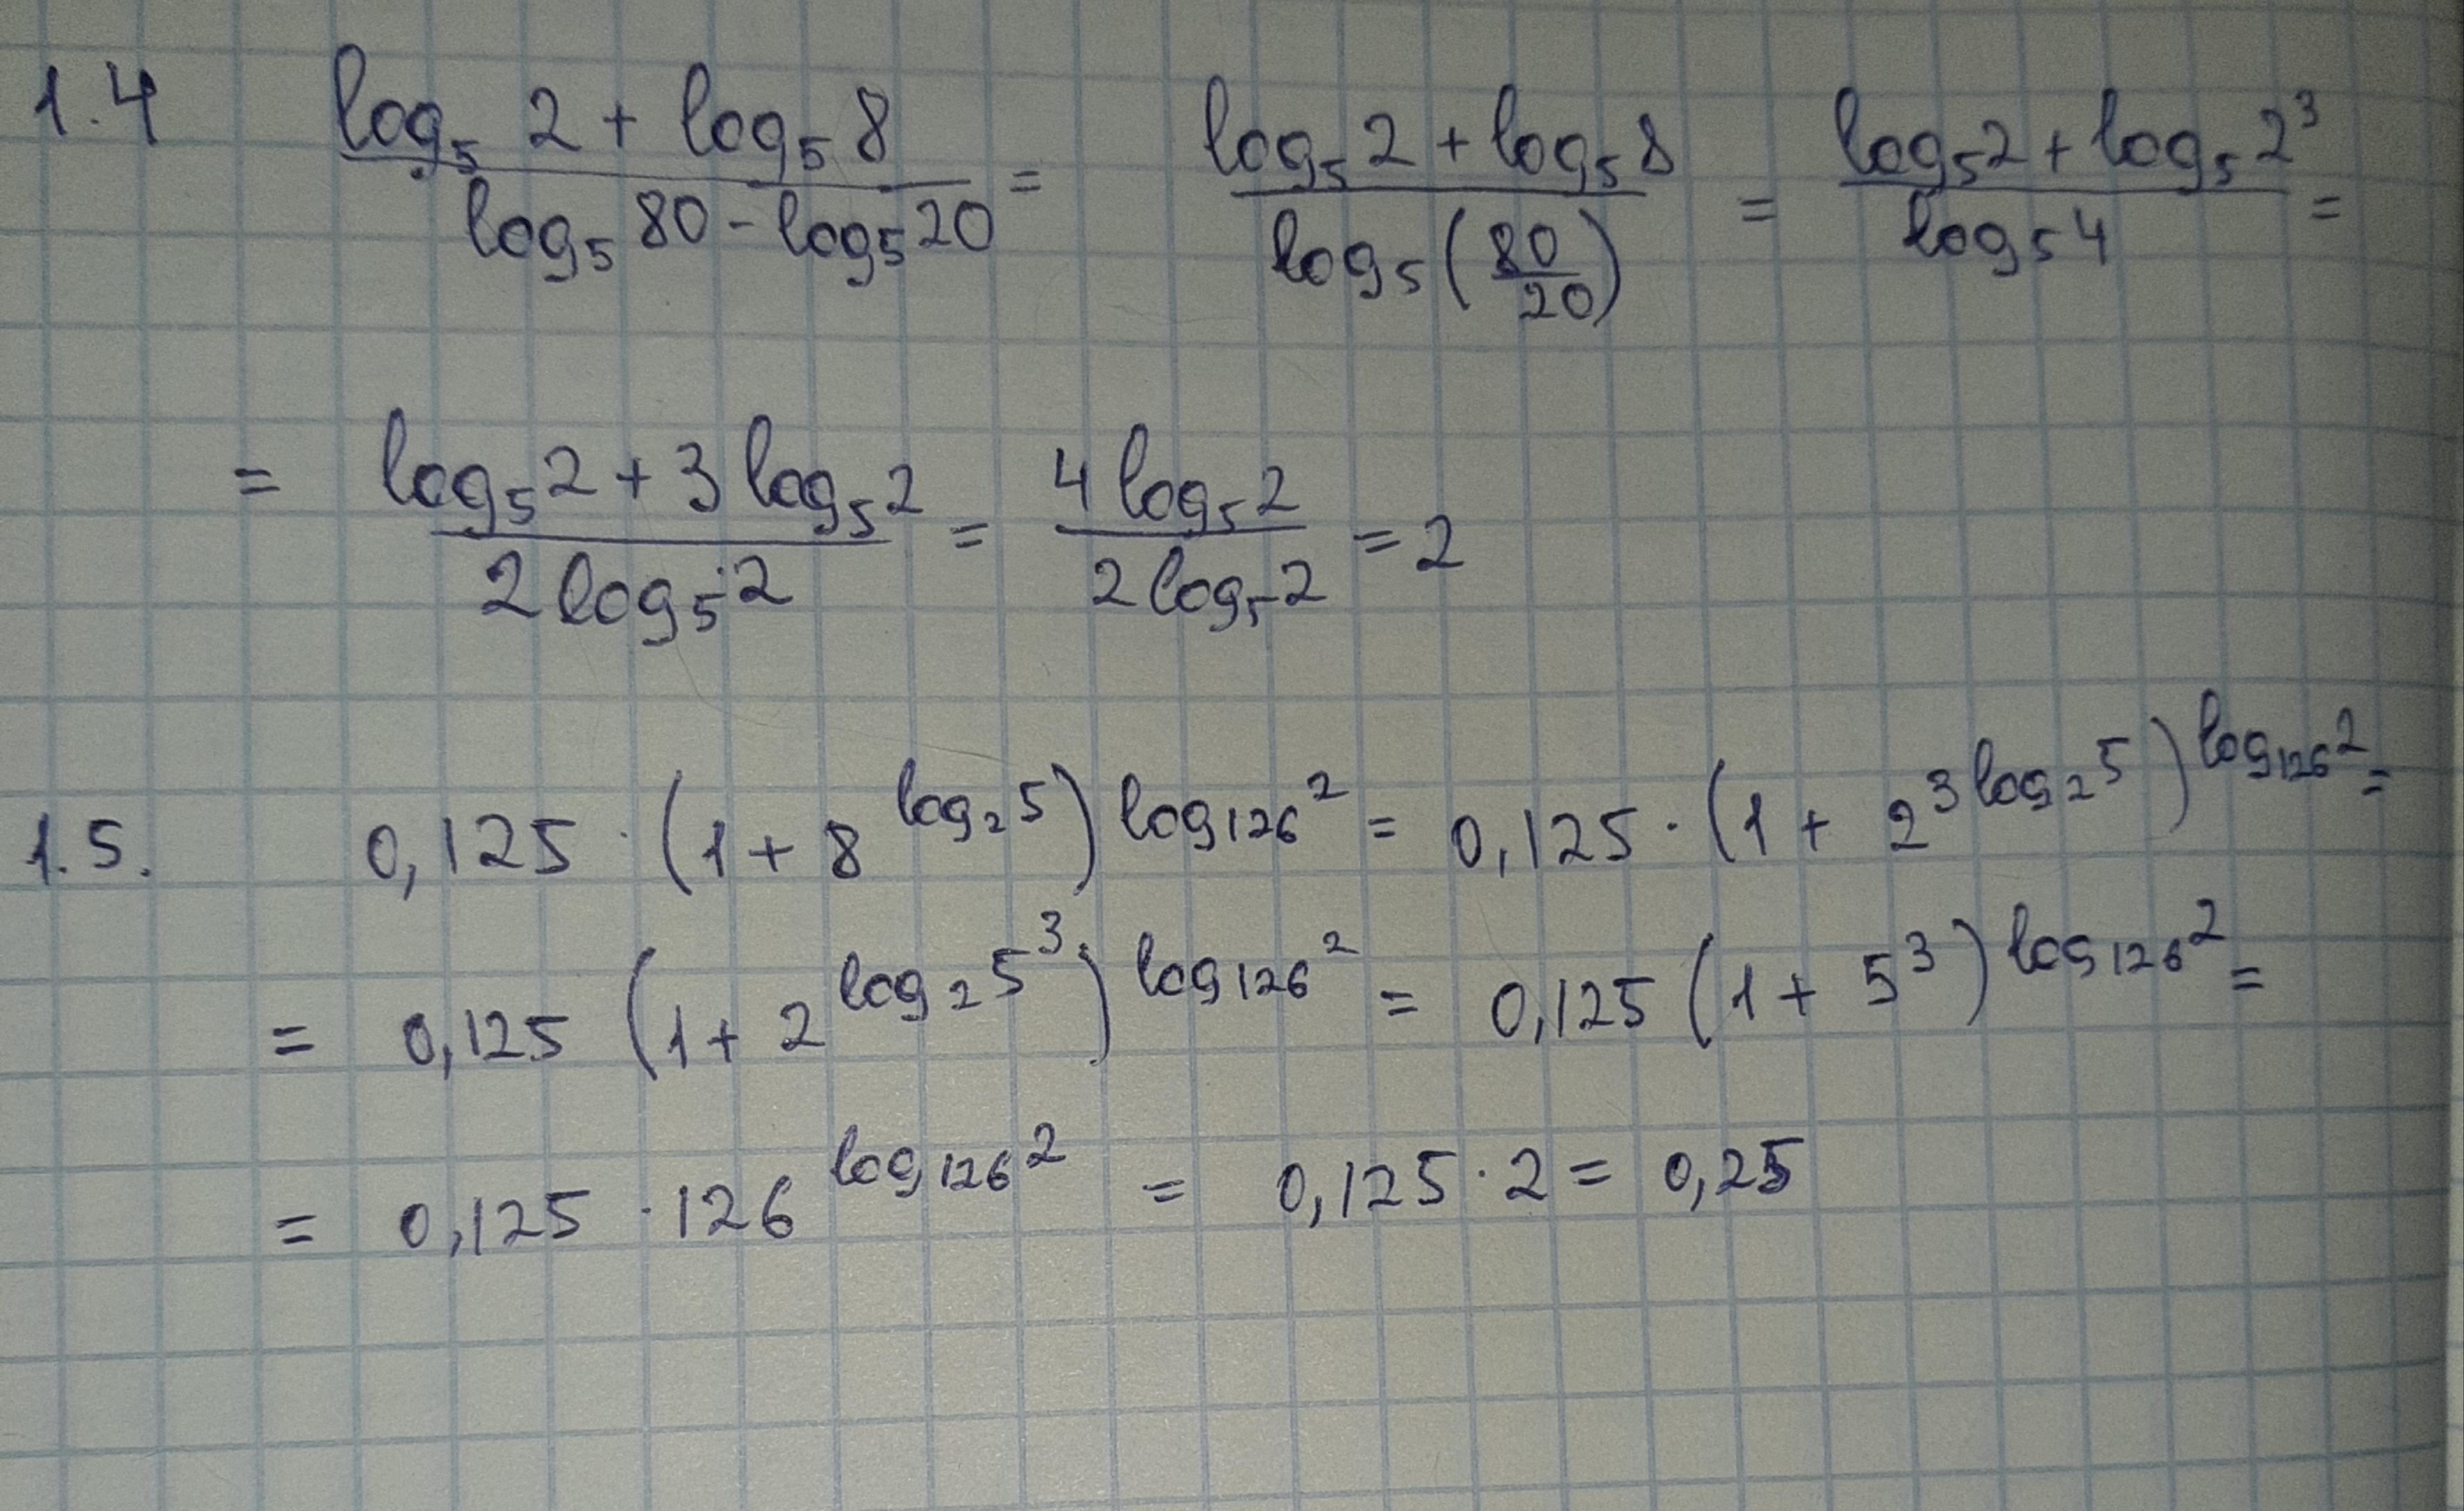 1.4 (log₅ 2 + log₅ 8)/(log₅ 80 - log₅ 20) = (log₅ 2 + log₅ 8)/(log₅ (80/20)) = (log₅ 2 + log₅ 2³)/(log₅ 4) =
= (log₅ 2 + 3 log₅ 2)/(2 log₅ 2) = (4 log₅ 2)/(2 log₅ 2) = 2
1.5. 0,125 · (1 + 8^(log₂ 5))^(log₁₂₆ 2) = 0,125 · (1 + 2^(3 log₂ 5))^(log₁₂₆ 2) =
= 0,125 (1 + 2^(log₂ 5³))^(log₁₂₆ 2) = 0,125 (1 + 5³)^(log₁₂₆ 2) =
= 0,125 · 126^(log₁₂₆ 2) = 0,125 · 2 = 0,25